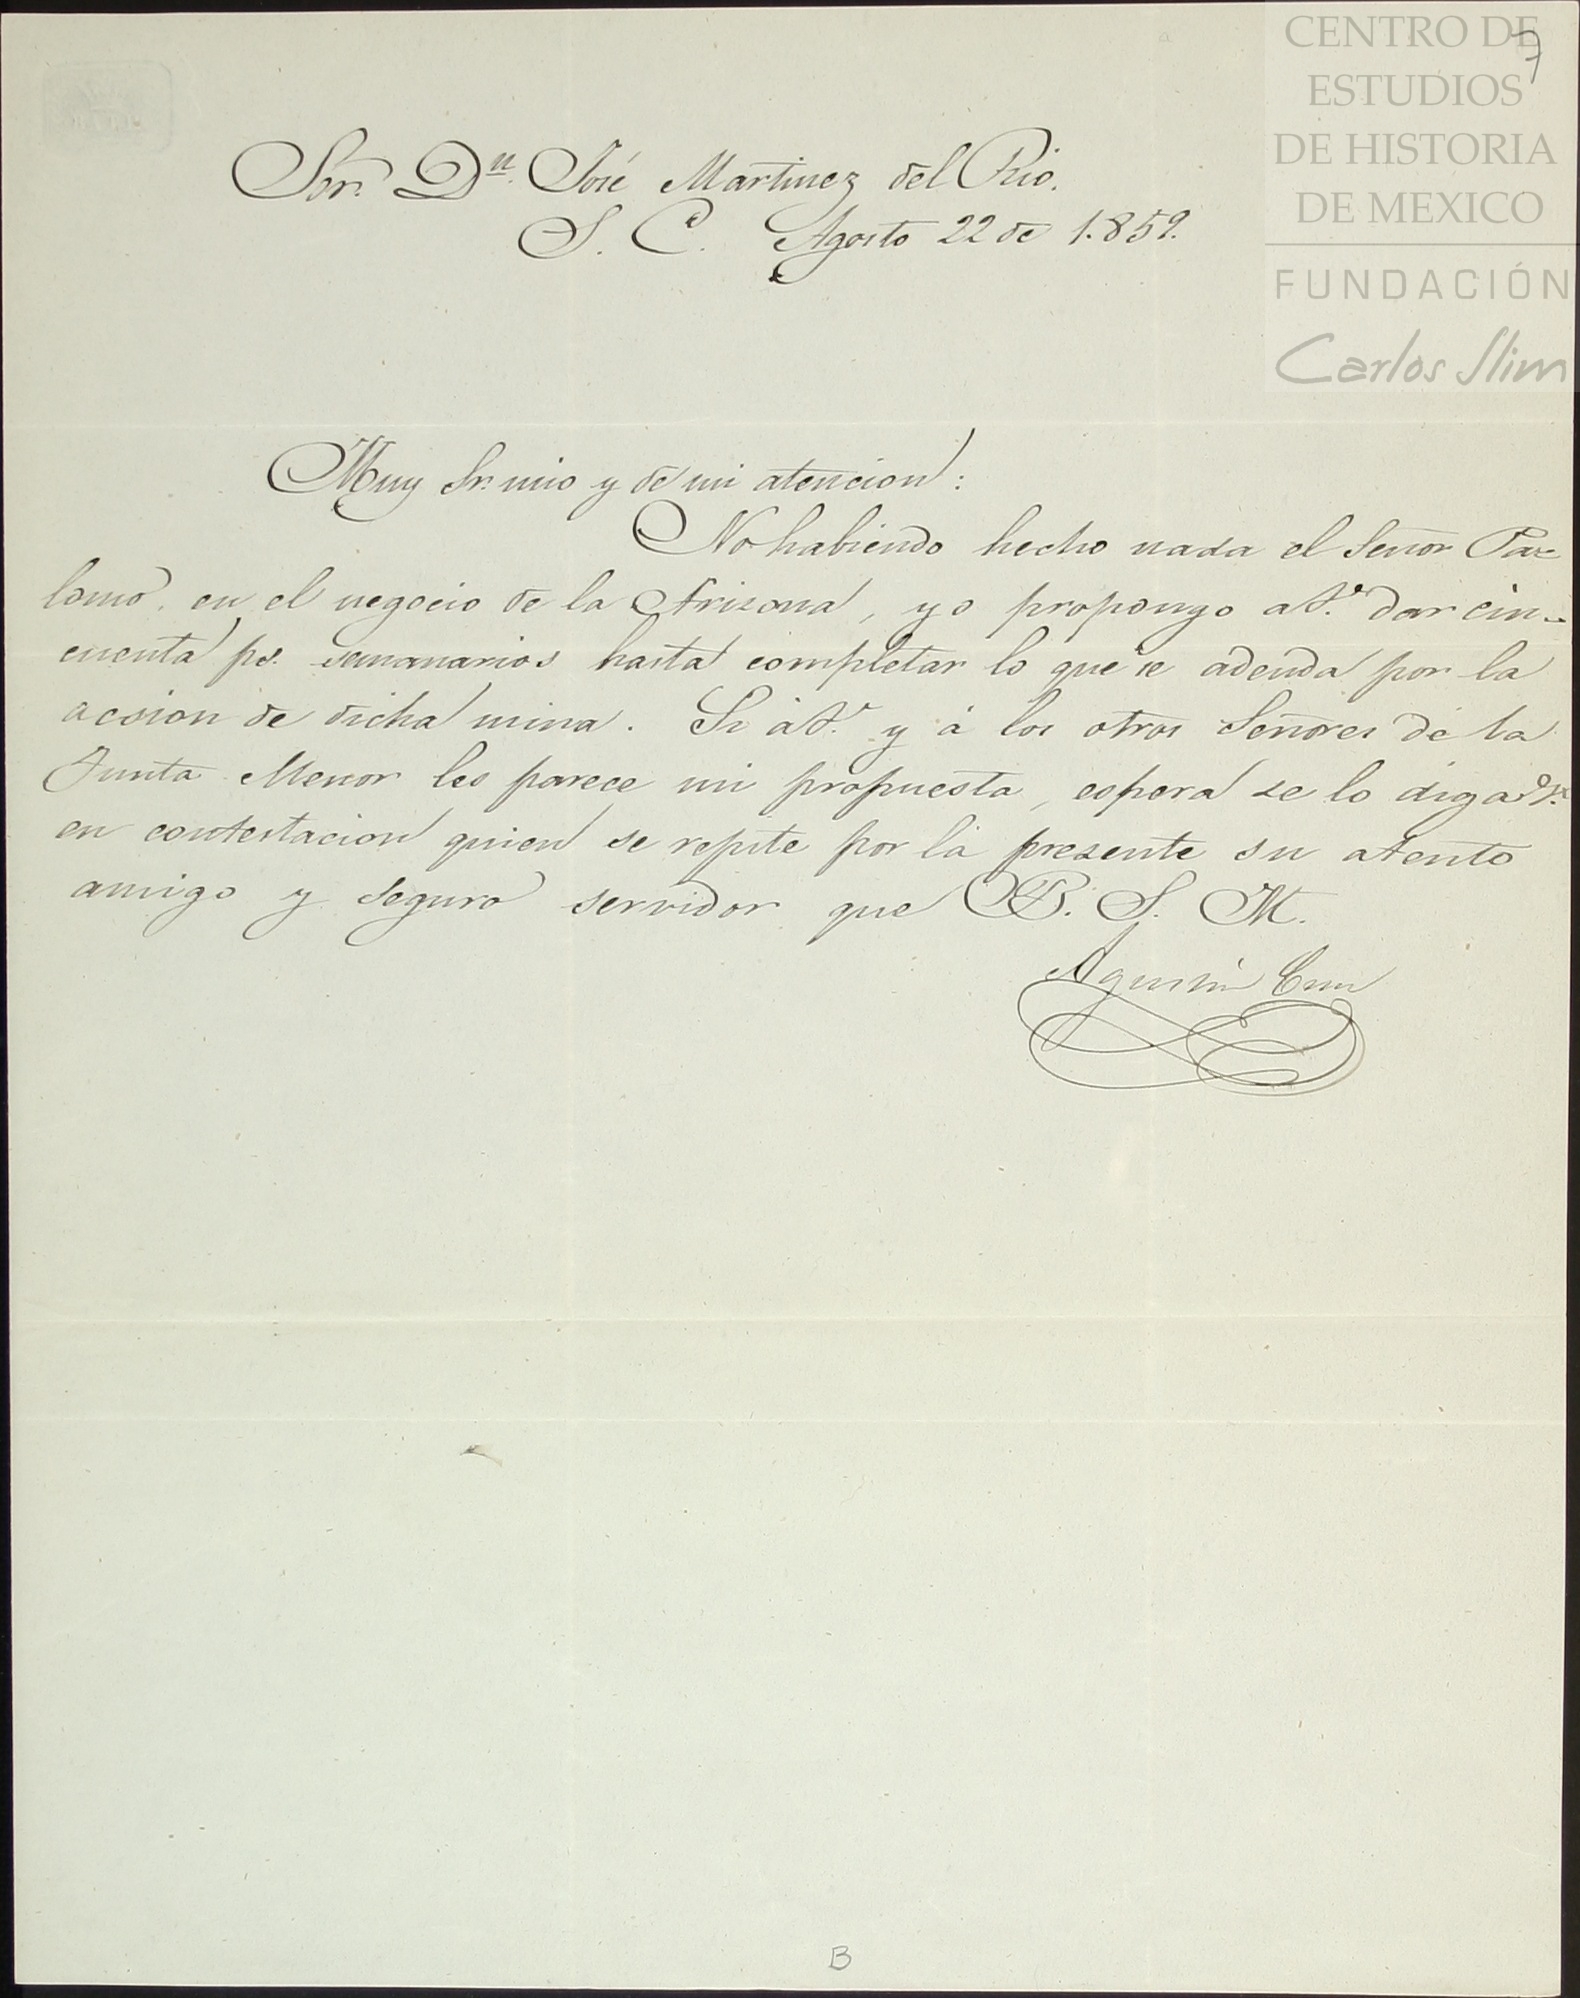 CENTRO DE
ESTUDIOS
DE HISTORIA
DE MEXICO
FUNDACIÓN
Carlos Slim
7
Sor. Dn. José Martinez del Rio.
S. C. Agosto 22 de 1.859.
Muy Sr. mio y de mi atencion:
No habiendo hecho nada el Señor Pa-
lomo, en el negocio de la Arizona, yo propongo a V. dar cin-
cuenta ps. semanarios hasta completar lo que se adeuda por la
accion de dicha mina. Si á V. y á los otros Señores de la
Junta Menor les parece mi propuesta, espera se lo diga V.
en contestacion quien se repite por la presente su atento
amigo y seguro servidor que B. S. M.
Agustin
B